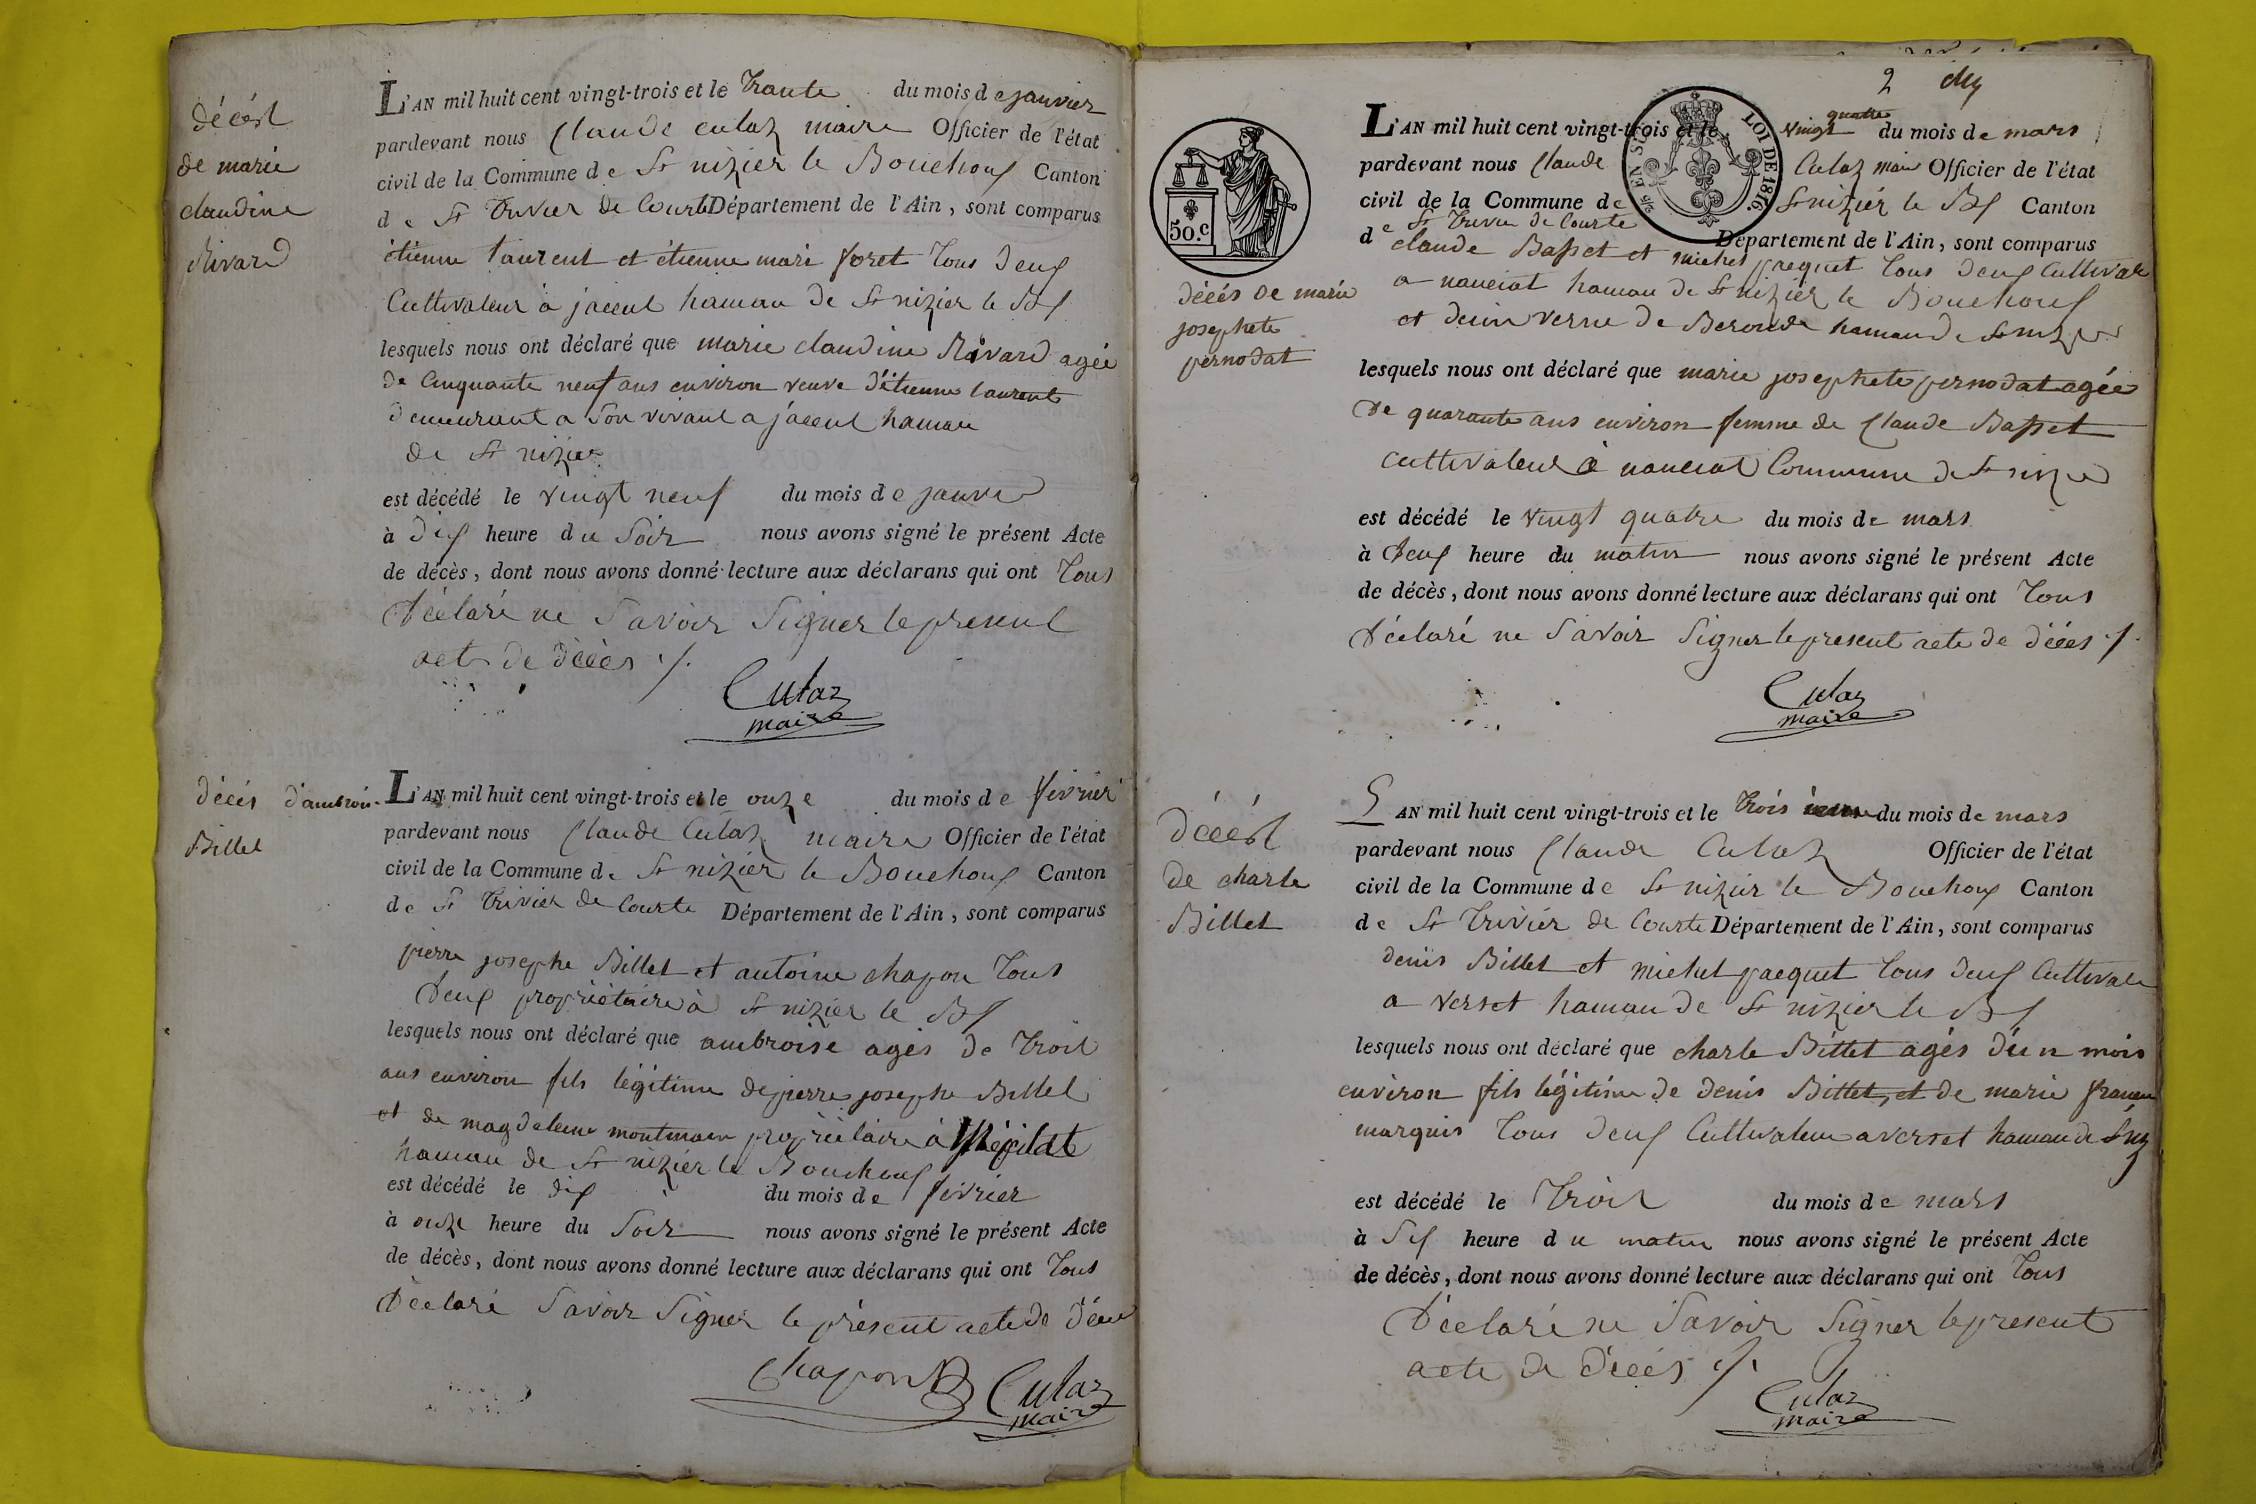 décést
de marie
claudine
Rivard
L'AN mil huit cent vingt-trois et le trante du mois de janvier
pardevant nous Claude culaz maire Officier de l'état
civil de la Commune de St nizier le Bouchoux Canton
de St Trivier de Courte Département de l'Ain, sont comparus
étienne laurent et étienne marie foret tous deux
Cultivateur à jaceul hamau de St nizier le Bx
lesquels nous ont déclaré que marie claudine Rivard agée
de Cinquante neuf ans environ veuve d'étienne laurent
demeurant a son vivant a jaceul hamau
de St nizier
est décédé le vingt neuf du mois de janvier
à dix heure du Soir nous avons signé le présent Acte
de décès, dont nous avons donné lecture aux déclarans qui ont tous
Déclaré ne Savoir Signer le present
acte de décès ./.
Culaz
maire
décés d'ambroi-
Billet
L'AN mil huit cent vingt-trois et le onze du mois de février
pardevant nous Claude Culaz maire Officier de l'état
civil de la Commune de St nizier le Bouchoux Canton
de St Trivier de Courte Département de l'Ain, sont comparus
pierre josephe Billet et antoine chapon tous
Deux propriétaire à St nizier le Bx
lesquels nous ont déclaré que ambroise agés de trois
ans environ fils légitime de pierre josephe Billet
et de magdeleine montmain propriétaire à
hamau de St nizier le Bouchoux
est décédé le dix du mois de février
à onze heure du Soir nous avons signé le présent Acte
de décès, dont nous avons donné lecture aux déclarans qui ont tous
Déclaré Savoir Signer le présent acte de décé
Chapon Culaz
maire
2
50.c
EN SUS LOI DE 1816.
décés de marie
josephete
pernodat
L'AN mil huit cent vingt-trois et le vingt quatre du mois de mars
pardevant nous Claude Culaz maire Officier de l'état
civil de la Commune de St nizier le Bx Canton
de St Trivier de Courte Département de l'Ain, sont comparus
claude Basset et michel pacquet tous deux Cultivat
a nanciat hamau de St nizier le Bouchoux
et hamau de St nizier
lesquels nous ont déclaré que marie josephete pernodat agée
De quarante ans environ femme de Claude Basset
cultivateur à nanciat Commune de St nizie
est décédé le vingt quatre du mois de mars
à Deux heure du matin nous avons signé le présent Acte
de décès, dont nous avons donné lecture aux déclarans qui ont tous
Déclaré ne Savoir Signer le present acte de décés ./.
Culaz
maire
Décést
De charle
Billet
L'AN mil huit cent vingt-trois et le trois du mois de mars
pardevant nous Claude Culaz Officier de l'état
civil de la Commune de St nizier le Bouchoux Canton
de St Trivier de Courte Département de l'Ain, sont comparus
denis Billet et michel pacquet tous deux Cultivate
a verset hamau de St nizier le Bx
lesquels nous ont déclaré que charle Billet agés d'un mois
environ fils légitime de denis Billet, et de marie
marquis tous deux Cultivateur a verset hamau de St niz
est décédé le trois du mois de mars
à Six heure du matin nous avons signé le présent Acte
de décès, dont nous avons donné lecture aux déclarans qui ont tous
Déclaré ne Savoir Signer le present
acte de décés ./.
Culaz
maire